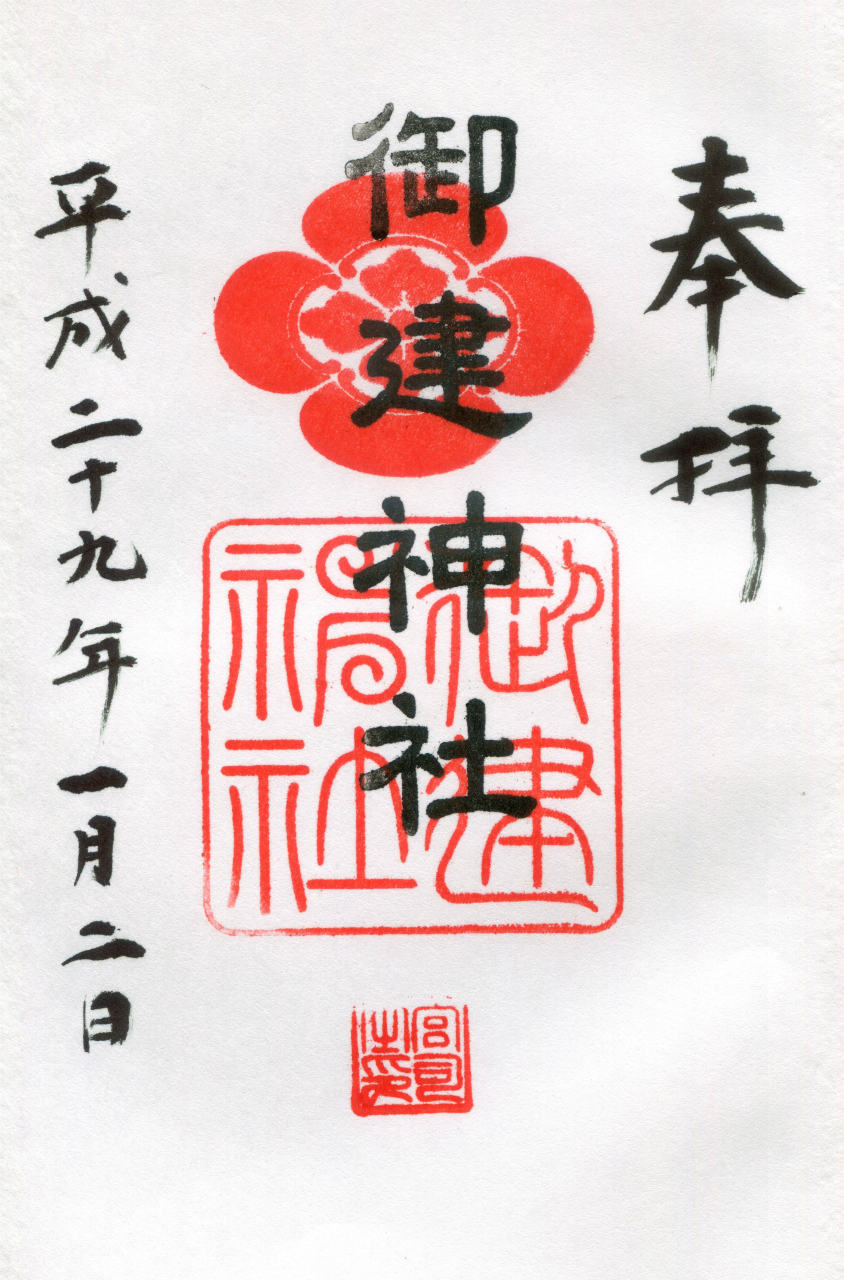 奉拝
御建神社
御建神社
宮司之印
平成二十九年一月二日